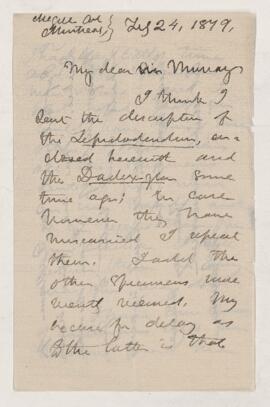 McGill Col.
Montreal, } July 24, 1879,
My dear Mr. Murray
I think I
sent the description of
the Lepidodendron, en-
closed herewith and
the Dadoxylon some
time ago; in case
however they have
miscarried I repeat
them. I add the
other specimens more
recently received. My
excuse for delay as
to the latter is that